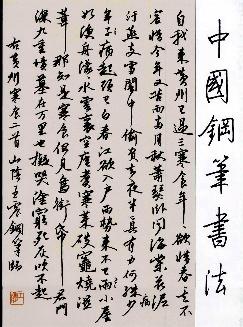 中國鋼筆書法
自我來黃州已過三寒食年〻欲惜春〻去不
容惜今年又苦雨兩月秋蕭瑟臥聞海棠花泥
汙燕支雪闇中偷負去夜半真有力何殊少
年子病起頭已白春江欲入戶雨勢來不已雨小屋
如漁舟濛〻水雲裏空庖煮寒菜破竈燒濕
葦那知是寒食但見烏銜帋君門
深九重墳墓在萬里也擬哭塗窮死灰吹不起
右黃州寒食二首山陰鋼筆臨